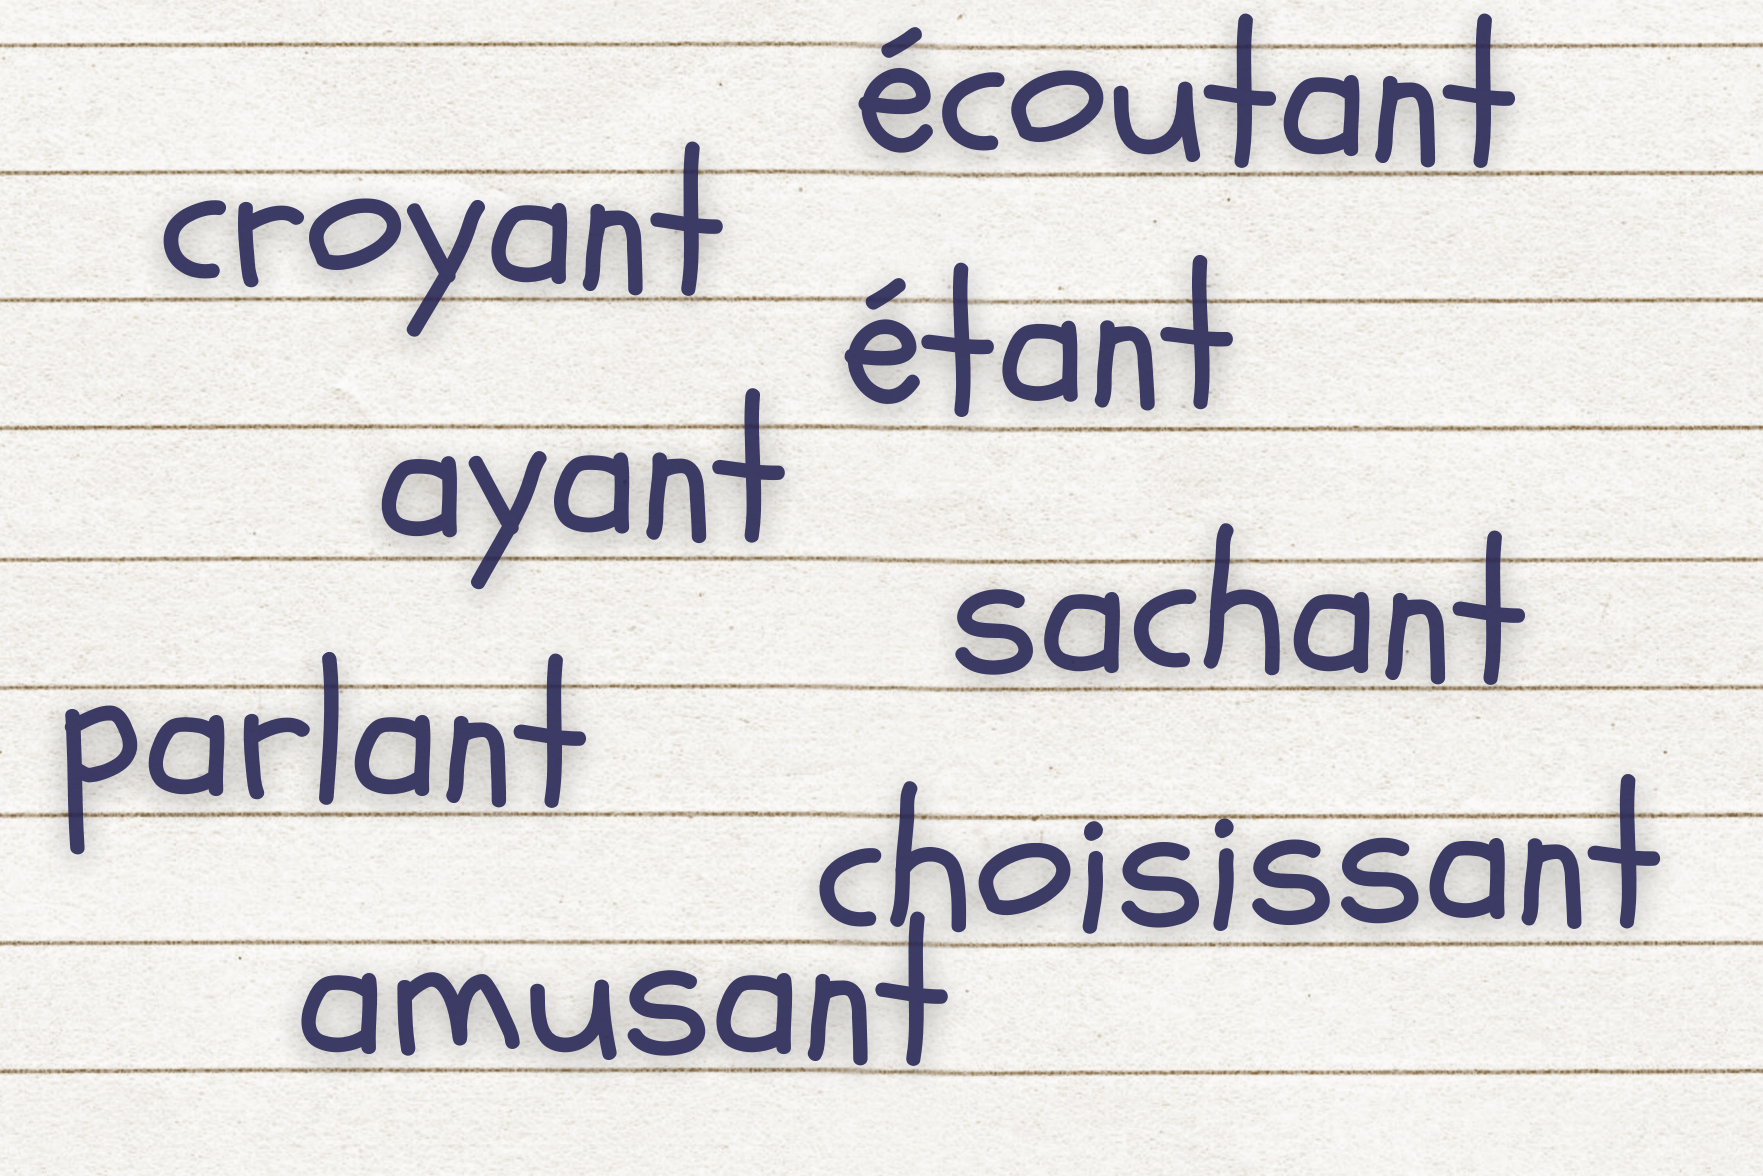 écoutant
croyant
étant
ayant
sachant
parlant
choisissant
amusant